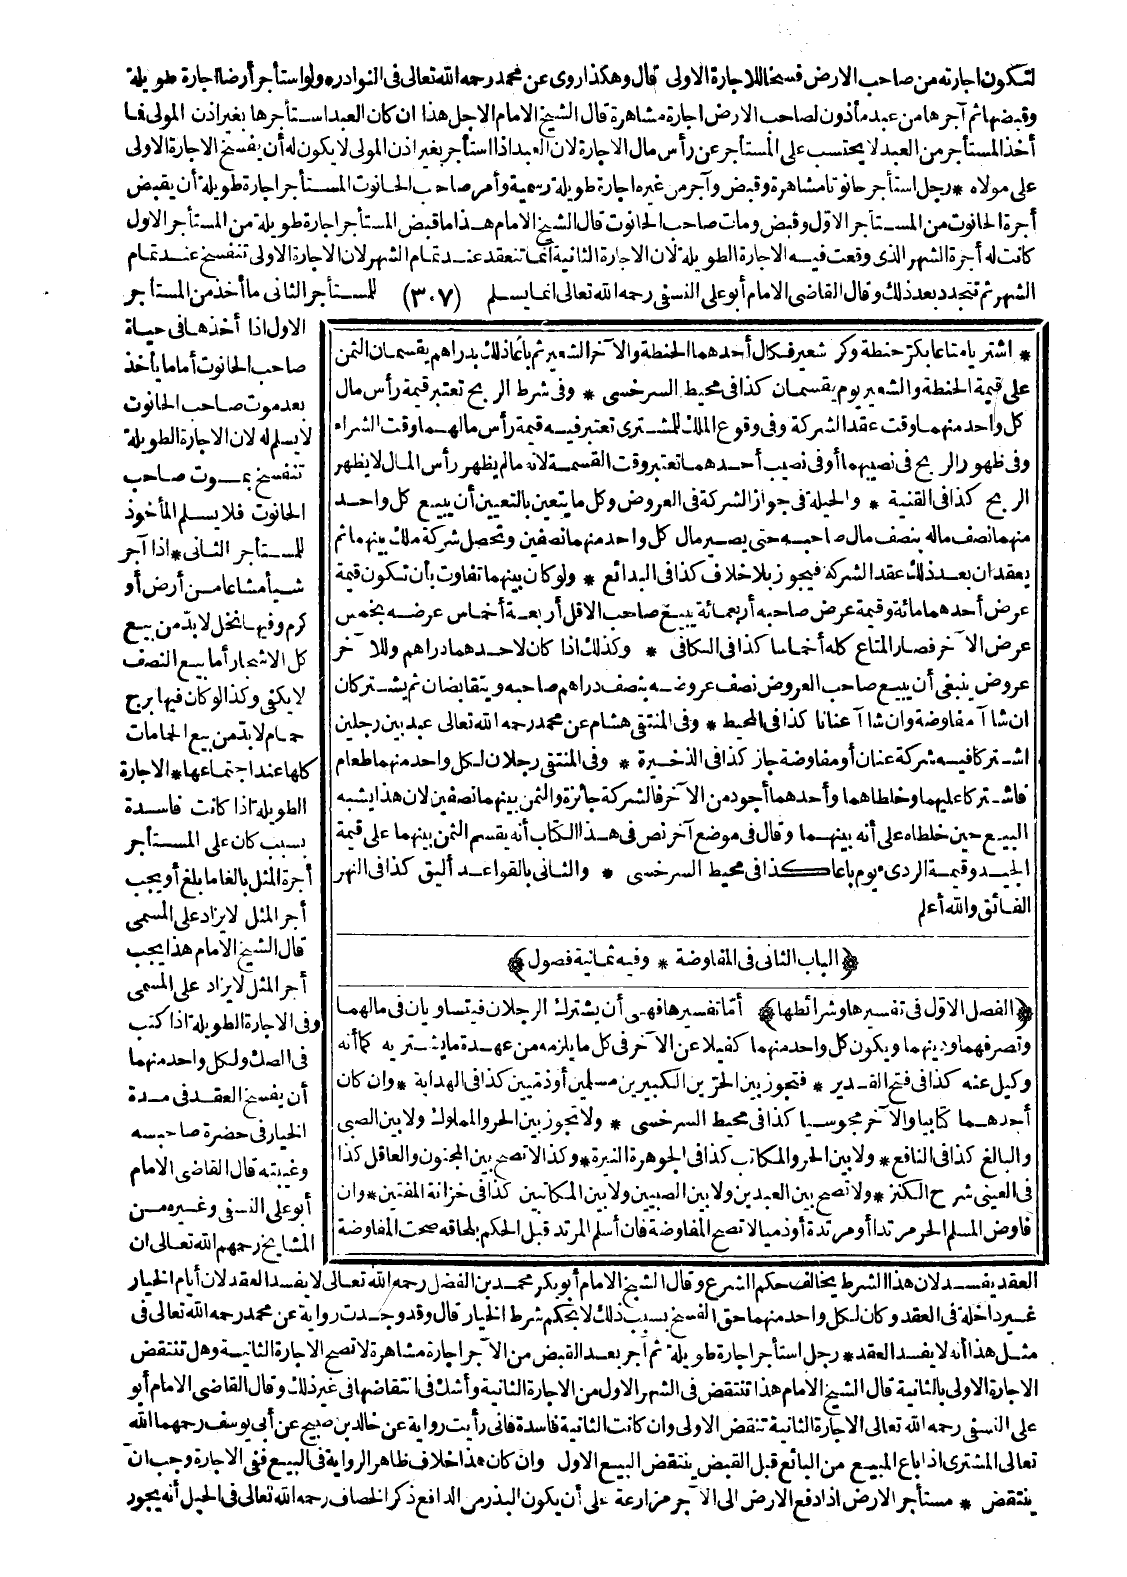 لتكون اجارته من صاحب الارض فسخا للاجارة الاولى قال وهكذا روى عن محمد رحمه الله تعالى فى النوادر * ولو استأجر أرضا اجارة طويلة
وقبضها ثم آجرها من عبد مأذون لصاحب الارض اجارة مشاهرة قال الشيخ الامام الاجل هذا ان كان العبد استأجرها بغير اذن المولى فما
أخذ المستأجر من العبد لا يحتسب على المستأجر عن رأس مال الاجارة لان العبد اذا استأجر بغير اذن المولى لا يكون له أن يفسخ الاجارة الاولى
على مولاه * رجل استأجر حانوتا مشاهرة وقبض وآجر من غيره اجارة طويلة رسمية وأمر صاحب الحانوت المستأجر اجارة طويلة أن يقبض
أجرة الحانوت من المستأجر الاول وقبض ومات صاحب الحانوت قال الشيخ الامام هذا ما قبض المستأجر اجارة طويلة من المستأجر الاول
كانت له أجرة الشهر الذى وقعت فيه الاجارة الطويلة لان الاجارة الثانية انما تنعقد عند تمام الشهر لان الاجارة الاولى تنفسخ عند تمام
الشهر ثم تتجدد بعد ذلك وقال القاضى الامام أبو على النسفى رحمه الله تعالى انما يسلم (٣٠٧) للمستأجر الثانى ما أخذ من المستأجر
الاول اذا أخذها فى حياة
صاحب الحانوت أما ما يأخذ
بعد موت صاحب الحانوت
لا يسلم له لان الاجارة الطويلة
تنفسخ بموت صاحب
الحانوت فلا يسلم المأخوذ
للمستأجر الثانى * اذا آجر
شيأ مشاعا من أرض أو
كرم وفيها نخل لا بد من بيع
كل الاشجار أما بيع النصف
لا يكفى وكذا لو كان فيها برج
حمام لا بد من بيع الحمامات
كلها عند اجتماعها * الاجارة
الطويلة اذا كانت فاسدة
بسبب كان على المستأجر
أجرة المثل بالغا ما بلغ أو يجب
أجر المثل لا يزاد على المسمى
قال الشيخ الامام هذا يجب
أجر المثل لا يزاد على المسمى
وفى الاجارة الطويلة اذا كتب
فى الصك ولكل واحد منهما
أن يفسخ العقد فى مدة
الخيار فى حضرة صاحبه
وغيبته قال القاضى الامام
أبو على النسفى وغيره من
المشايخ رحمهم الله تعالى ان
* اشتريا متاعا بكر حنطة وكر شعير فكال أحدهما الحنطة والآخر الشعير ثم باعا ذلك بدراهم يقسمان الثمن
على قيمة الحنطة والشعير يوم يقسمان كذا فى محيط السرخسى * وفى شرط الربح تعتبر قيمة رأس مال
كل واحد منهما وقت عقد الشركة وفى وقوع الملك للمشترى تعتبر فيه قيمة رأس مالهما وقت الشراء
وفى ظهور الربح فى نصيبهما أو فى نصيب أحدهما تعتبر وقت القسمة لانه ما لم يظهر رأس المال لا يظهر
الربح كذا فى القنية * والحيلة فى جواز الشركة فى العروض وكل ما يتعين بالتعيين أن يبيع كل واحد
منهما نصف ماله بنصف مال صاحبه حتى يصير مال كل واحد منهما نصفين وتحصل شركة ملك بينهما ثم
يعقدان بعد ذلك عقد الشركة فيجوز بلا خلاف كذا فى البدائع * ولو كان بينهما تفاوت بأن تكون قيمة
عرض أحدهما مائة وقيمة عرض صاحبه أربعمائة يبيع صاحب الاقل أربعة أخماس عرضه بخمس
عرض الآخر فصار المتاع كله أخماسا كذا فى الكافى * وكذلك اذا كان لاحدهما دراهم وللآخر
عروض ينبغى أن يبيع صاحب العروض نصف عروضه بنصف دراهم صاحبه ويتقابضان ثم يشتركان
ان شاآ مفاوضة وان شاآ عنانا كذا فى المحيط * وفى المنتقى هشام عن محمد رحمه الله تعالى عبد بين رجلين
اشتركا فيه شركة عنان أو مفاوضة جاز كذا فى الذخيرة * وفى المنتقى رجلان لكل واحد منهما طعام
فاشتركا عليهما وخلطاهما وأحدهما أجود من الآخر فالشركة جائزة والثمن بينهما نصفين لان هذا يشبه
البيع حين خلطاه على أنه بينهما وقال فى موضع آخر نص فى هذا الكتاب أنه يقسم الثمن بينهما على قيمة
الجيد وقيمة الردىء يوم باعا كذا فى محيط السرخسى * والثانى بالقواعد أليق كذا فى النهر
الفائق والله أعلم
﴿الباب الثانى فى المفاوضة * وفيه ثمانية فصول﴾
﴿الفصل الاول فى تفسيرها وشرائطها﴾ أما تفسيرها فهى أن يشترك الرجلان فيتساويان فى مالهما
وتصرفهما ودينهما ويكون كل واحد منهما كفيلا عن الآخر فى كل ما يلزمه من عهدة ما يشتريه كما أنه
وكيل عنه كذا فى فتح القدير * فتجوز بين الحرين الكبيرين مسلمين أو ذميين كذا فى الهداية * وان كان
أحدهما كتابيا والآخر مجوسيا كذا فى محيط السرخسى * ولا تجوز بين الحر والمملوك ولا بين الصبى
والبالغ كذا فى النافع * ولا بين الحر والمكاتب كذا فى الجوهرة النيرة * وكذا لا تصح بين المجنون والعاقل كذا
فى العينى شرح الكنز * ولا تصح بين العبدين ولا بين الصبيين ولا بين المكاتبين كذا فى خزانة المفتين * وان
فاوض المسلم الحر مرتدا أو مرتدة أو ذميا لا تصح المفاوضة فان أسلم المرتد قبل الحكم بلحاقه صحت المفاوضة
العقد يفسد لان هذا الشرط يخالف حكم الشرع وقال الشيخ الامام أبو بكر محمد بن الفضل رحمه الله تعالى لا يفسد العقد لان أيام الخيار
غير داخلة فى العقد وكان لكل واحد منهما حق الفسخ بسبب ذلك لا بحكم شرط الخيار قال وقد وجدت رواية عن محمد رحمه الله تعالى فى
مثل هذا أنه لا يفسد العقد * رجل استأجر اجارة طويلة ثم آجر بعد القبض من الآجر اجارة مشاهرة لا تصح الاجارة الثانية وهل تنتقض
الاجارة الاولى بالثانية قال الشيخ الامام هذا تنتقض فى الشهر الاول من الاجارة الثانية وأشك فى انتقاضها فى غير ذلك وقال القاضى الامام أبو
على النسفى رحمه الله تعالى الاجارة الثانية تنقض الاولى وان كانت الثانية فاسدة فانى رأيت رواية عن خالد بن صبيح عن أبى يوسف رحمهما الله
تعالى المشترى اذا باع المبيع من البائع قبل القبض ينتقض البيع الاول وان كان هذا خلاف ظاهر الرواية فى البيع ففى الاجارة وجب ان
ينتقض * مستأجر الارض اذا دفع الارض الى الآجر مزارعة على أن يكون البذر من الدافع ذكر الخصاف رحمه الله تعالى فى الحيل أنه يجوز